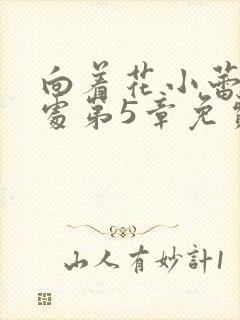 向着花小蕾
处第5章免费
山人有妙計1